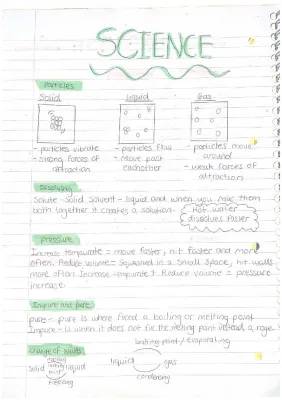 SCIENCE
particles
Solid Liquid Gas
- particles vibrate
- strong forces of
attraction
- particles flow
- Move past
eachother
- particles move
around
- weak forces of
attraction
Dissolving
Solute - Solid Solvent - liquid and when you mix them
both together it creates a solution.
Hot water
dissolves faster
pressure
Increase temprature = move faster, hit faster and more
often. Reduce volume = Squashed in a small space, hit walls
more often Increase temprature ↑ Reduce volume = pressure
increase.
Impure and pure
pure - pure is where fixed a boiling or melting point
Impure - is when it does not fix the melting point instead a
change of states
boiling point / evaporating
Solid melting point liquid
freezing
liquid gas
condensing